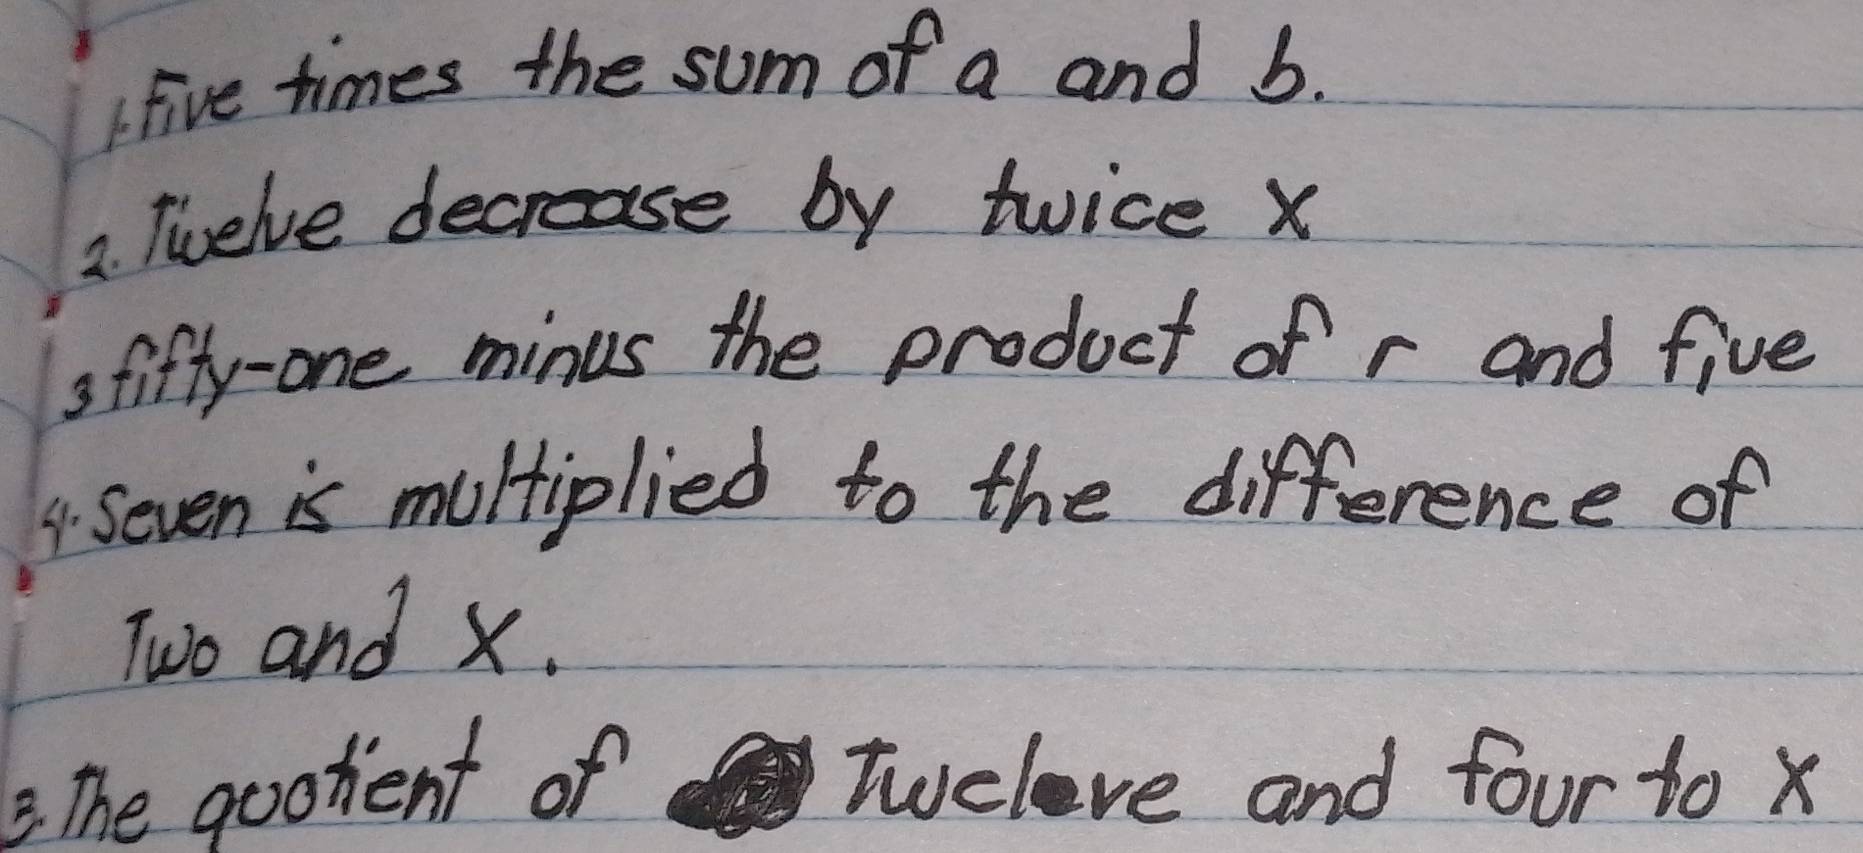 1. Five times the sum of a and b.
2. Twelve decrease by twice x
3 fifty-one minus the product of r and five
4. Seven is multiplied to the difference of
Two and x.
3. The quotient of Twelove and four to x